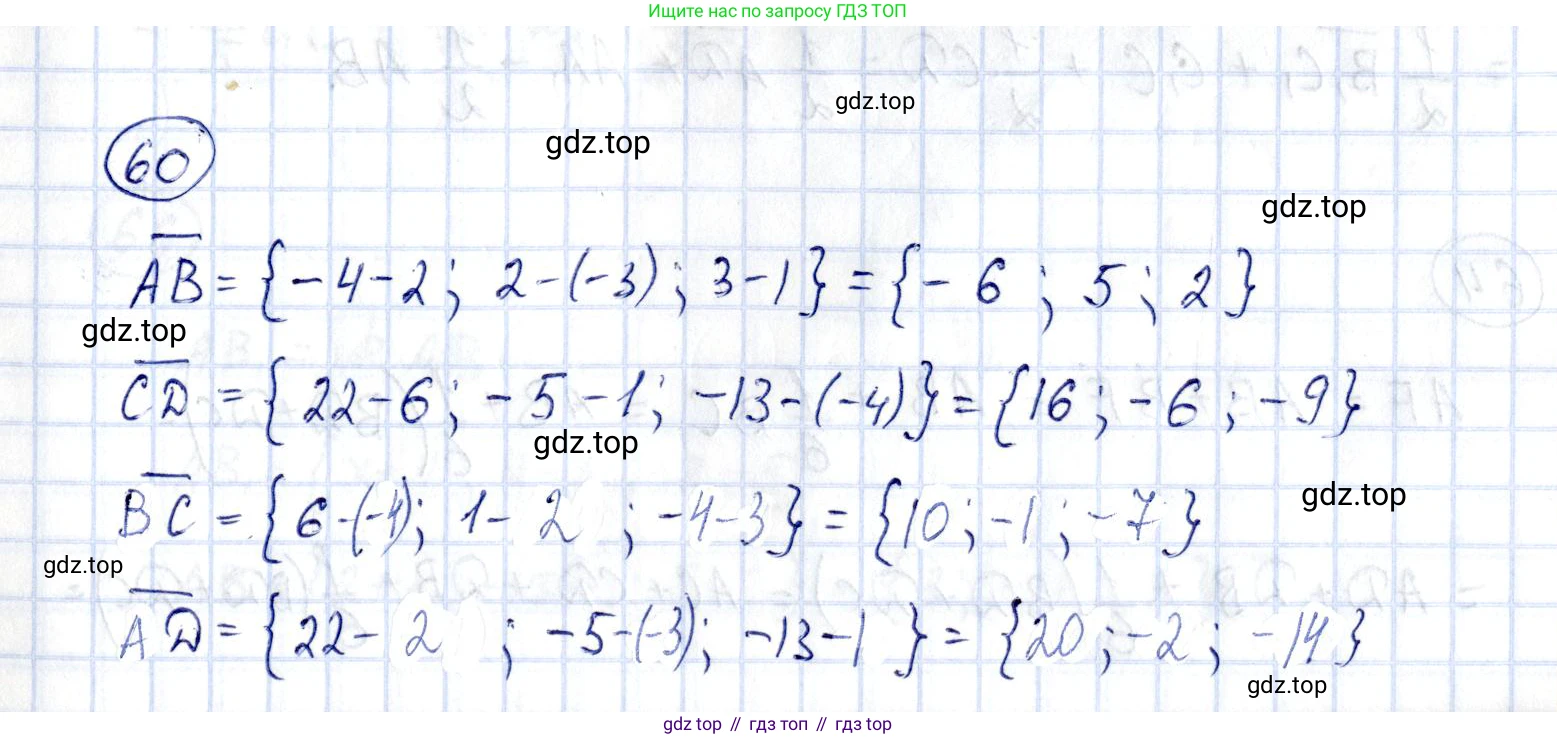 Ищите нас по запросу ГДЗ ТОП
gdz.top
gdz.top
60
gdz.top
AB = {-4-2; 2-(-3); 3-1} = {-6; 5; 2}
gdz.top
CD = {22-6; -5-1; -13-(-4)} = {16; -6; -9}
gdz.top
BC = {6-(-4); 1-2; -4-3} = {10; -1; -7}
gdz.top
gdz.top
AD = {22-2; -5-(-3); -13-1} = {20; -2; -14}
gdz.top
gdz top // гдз топ // гдз top